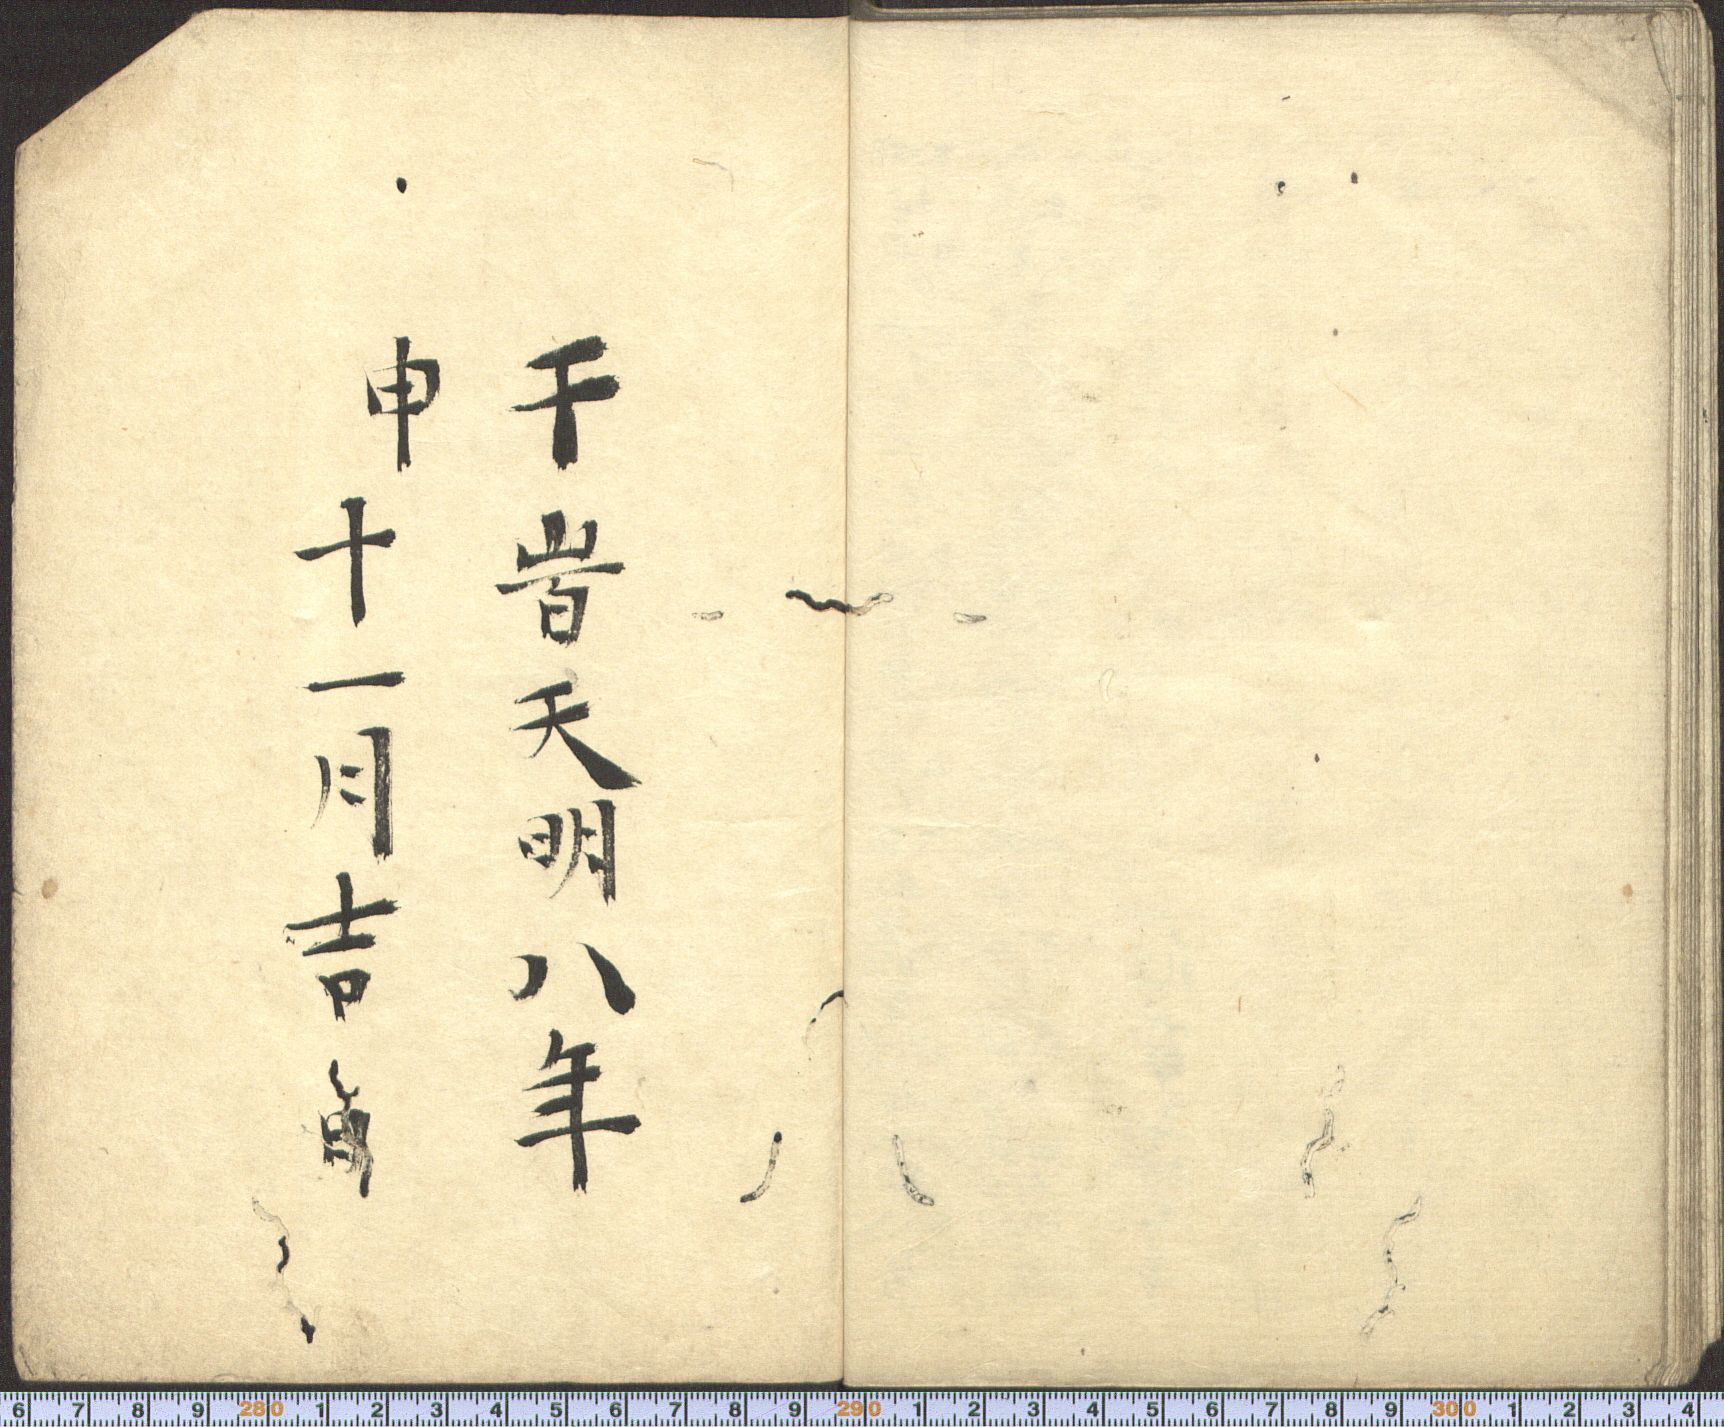 于旹天明八年
申十一月吉
6 7 8 9 280 1 2 3 4 5 6 7 8 9 290 1 2 3 4 5 6 7 8 9 300 1 2 3 4